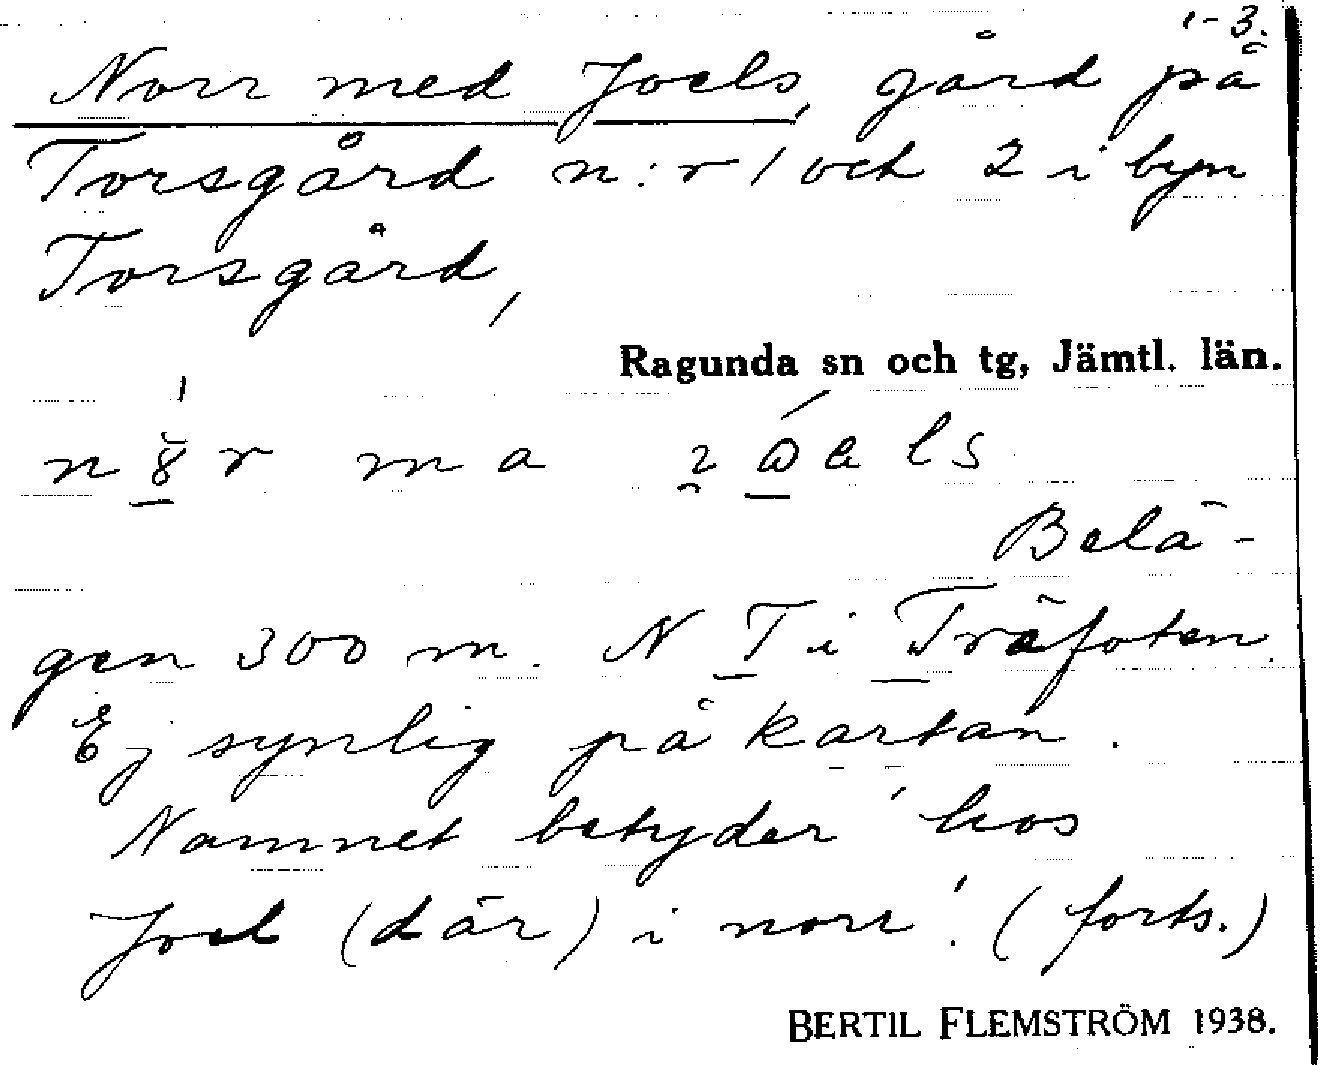 1-3.
Norr med Joels, gård på
Torsgård n:r 1 och 2 i byn
Torsgård,
Ragunda sn och tg, Jämtl. län.
ma
Belä-
gen 300 m. N T i Träfoten.
Ej synlig på kartan.
Namnet betyder 'hos
Joel (där) i norr'. (forts.)
BERTIL FLEMSTRÖM 1938.